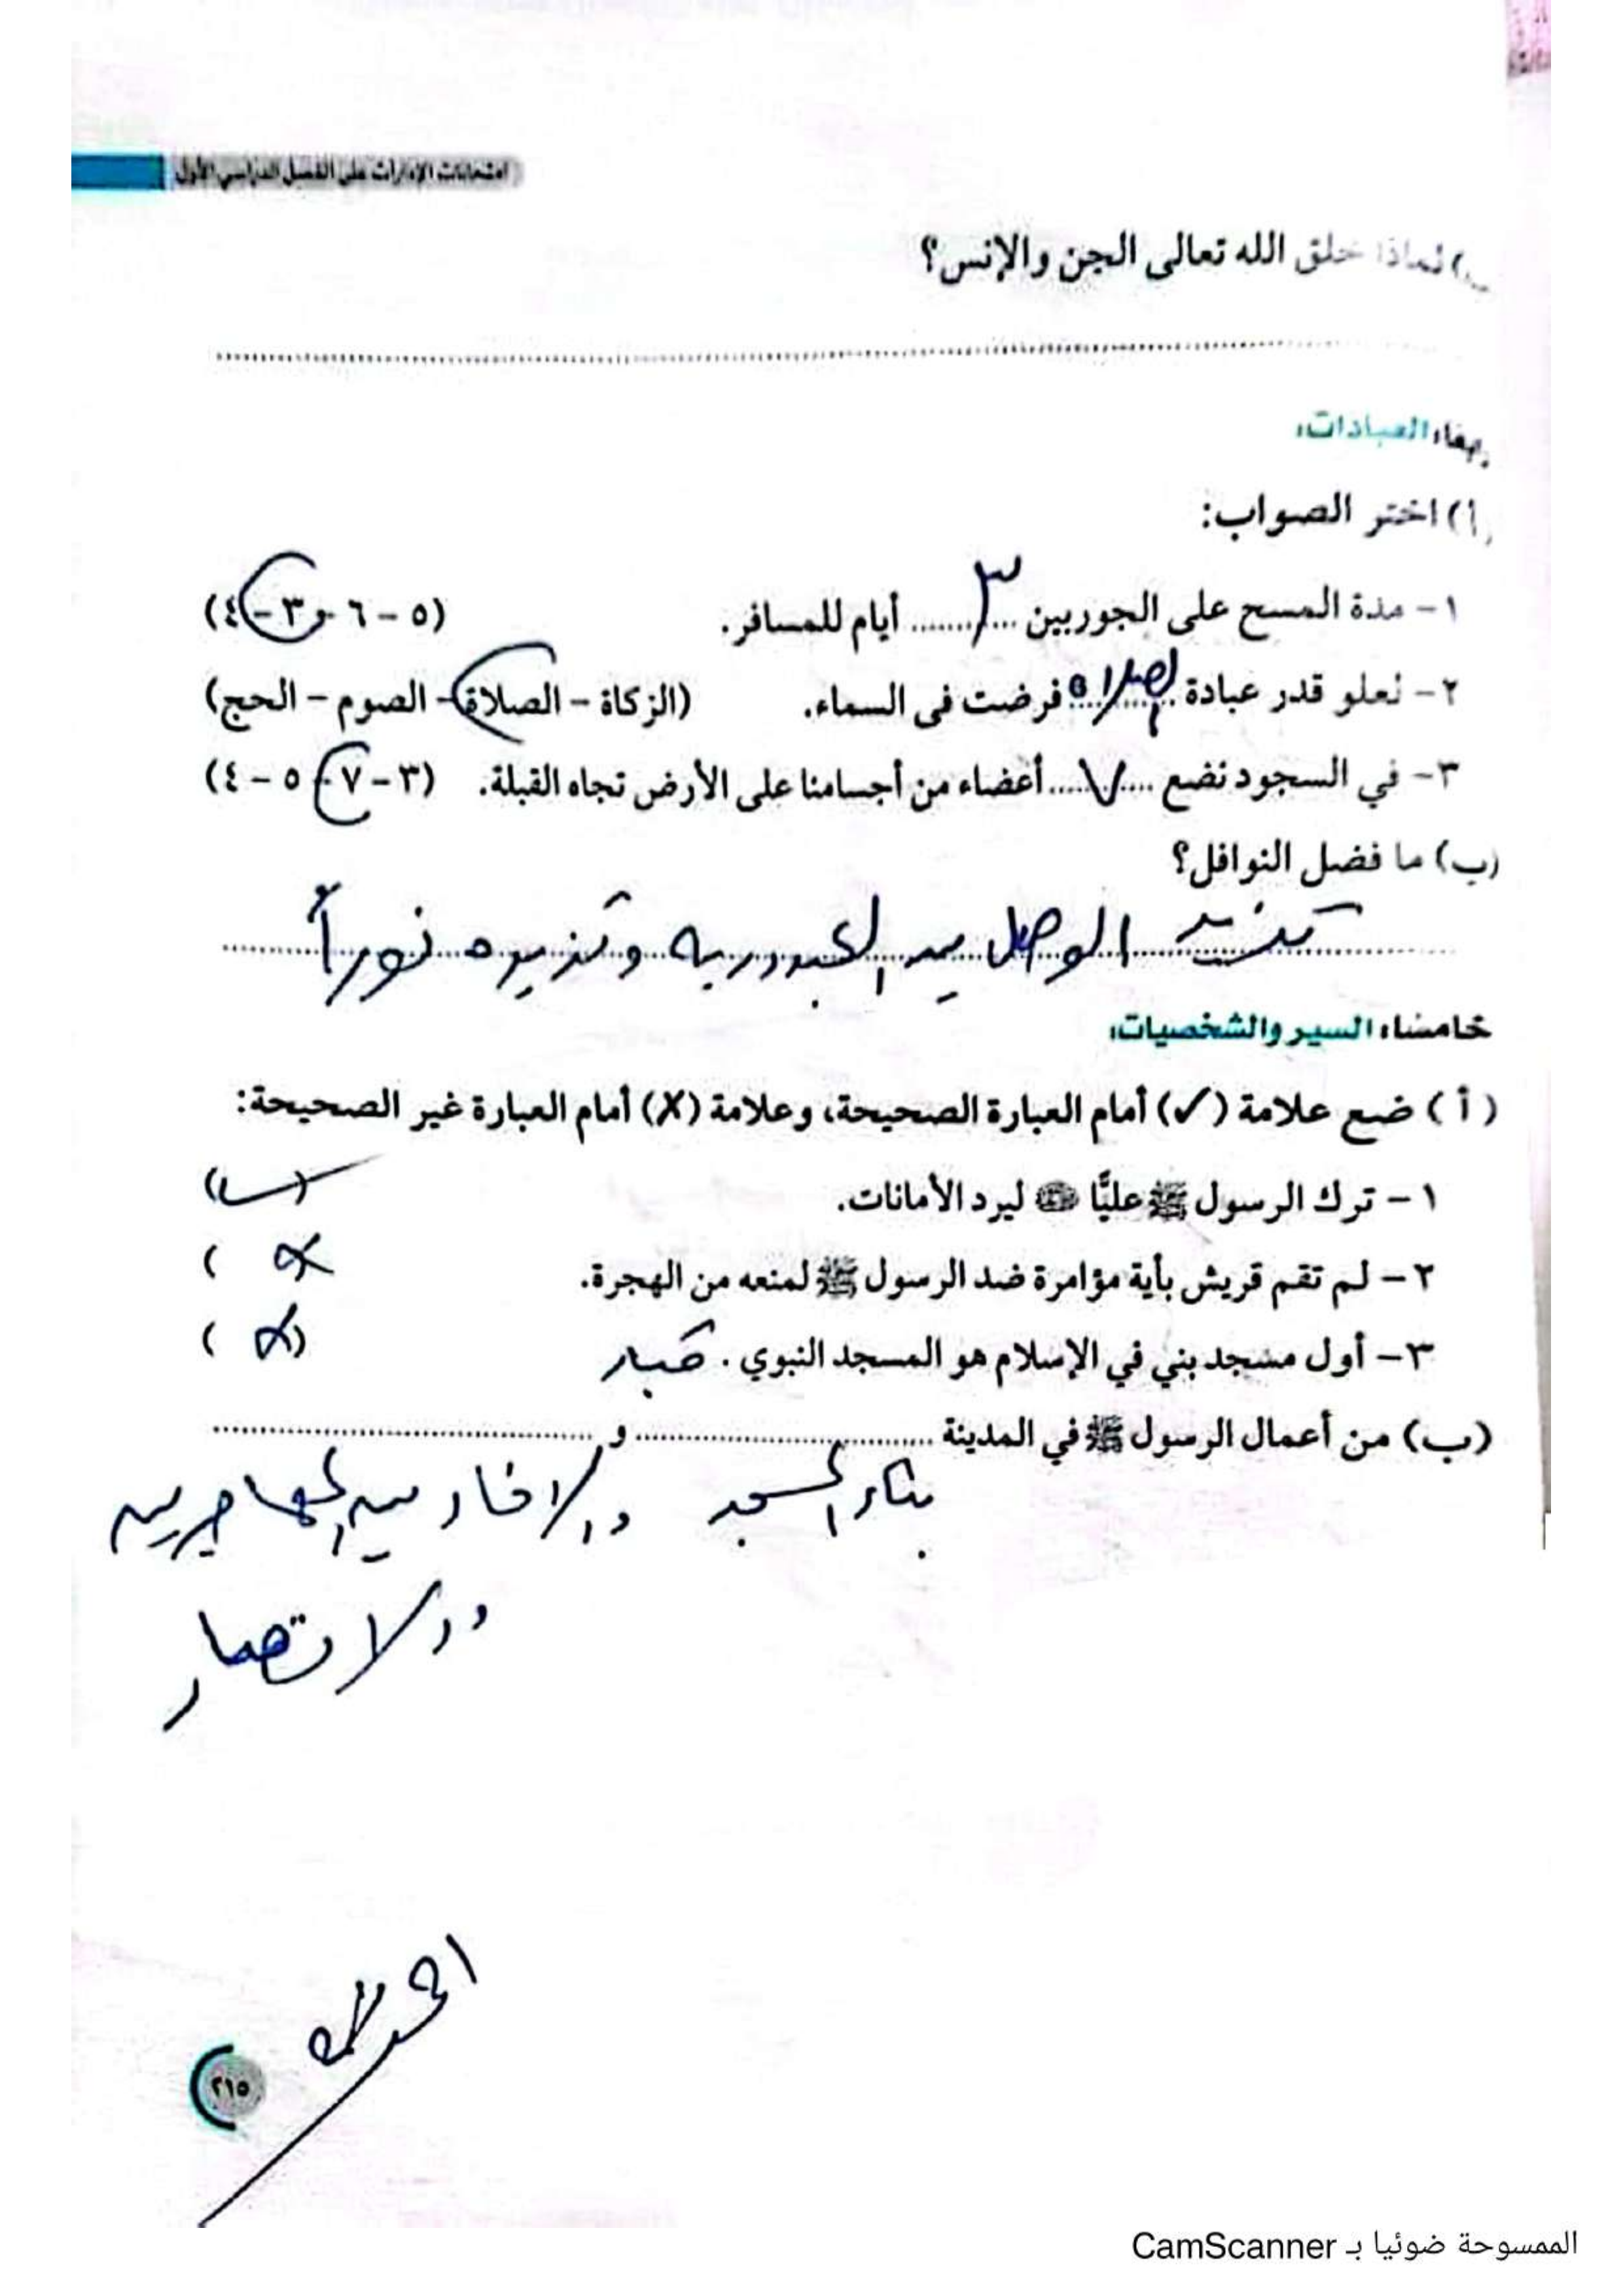 امتحانات الإدارات على الفصل الدراسي الأول
ب) لماذا خلق الله تعالى الجن والإنس؟
رابعًا: العبادات:
(أ) اختر الصواب:
١- مدة المسح على الجوربين ....٣.... أيام للمسافر. (٥ - ٦ - ٣ - ٤)
٢- تعلو قدر عبادة ..الصلاة.. فرضت فى السماء. (الزكاة - الصلاة - الصوم - الحج)
٣- في السجود نضع ....٧.... أعضاء من أجسامنا على الأرض تجاه القبلة. (٣ - ٧ - ٥ - ٤)
(ب) ما فضل النوافل؟
تزيد الوصل بين العبد وربه وتزيده نوراً
خامسًا: السير والشخصيات:
(أ) ضع علامة (✓) أمام العبارة الصحيحة، وعلامة (X) أمام العبارة غير الصحيحة:
١- ترك الرسول ﷺ عليًّا ليرد الأمانات. (✓)
٢- لم تقم قريش بأية مؤامرة ضد الرسول ﷺ لمنعه من الهجرة. (X)
٣- أول مسجد بني في الإسلام هو المسجد النبوي . قباء (X)
(ب) من أعمال الرسول ﷺ في المدينة .................... و ....................
بناء المسجد والإخاء بين المهاجرين
والانصار
الحمد لله
٢١٥
الممسوحة ضوئيا بـ CamScanner